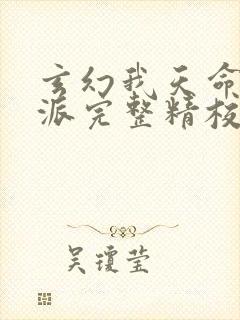 玄幻我天命
派完整精校
吴琼莹